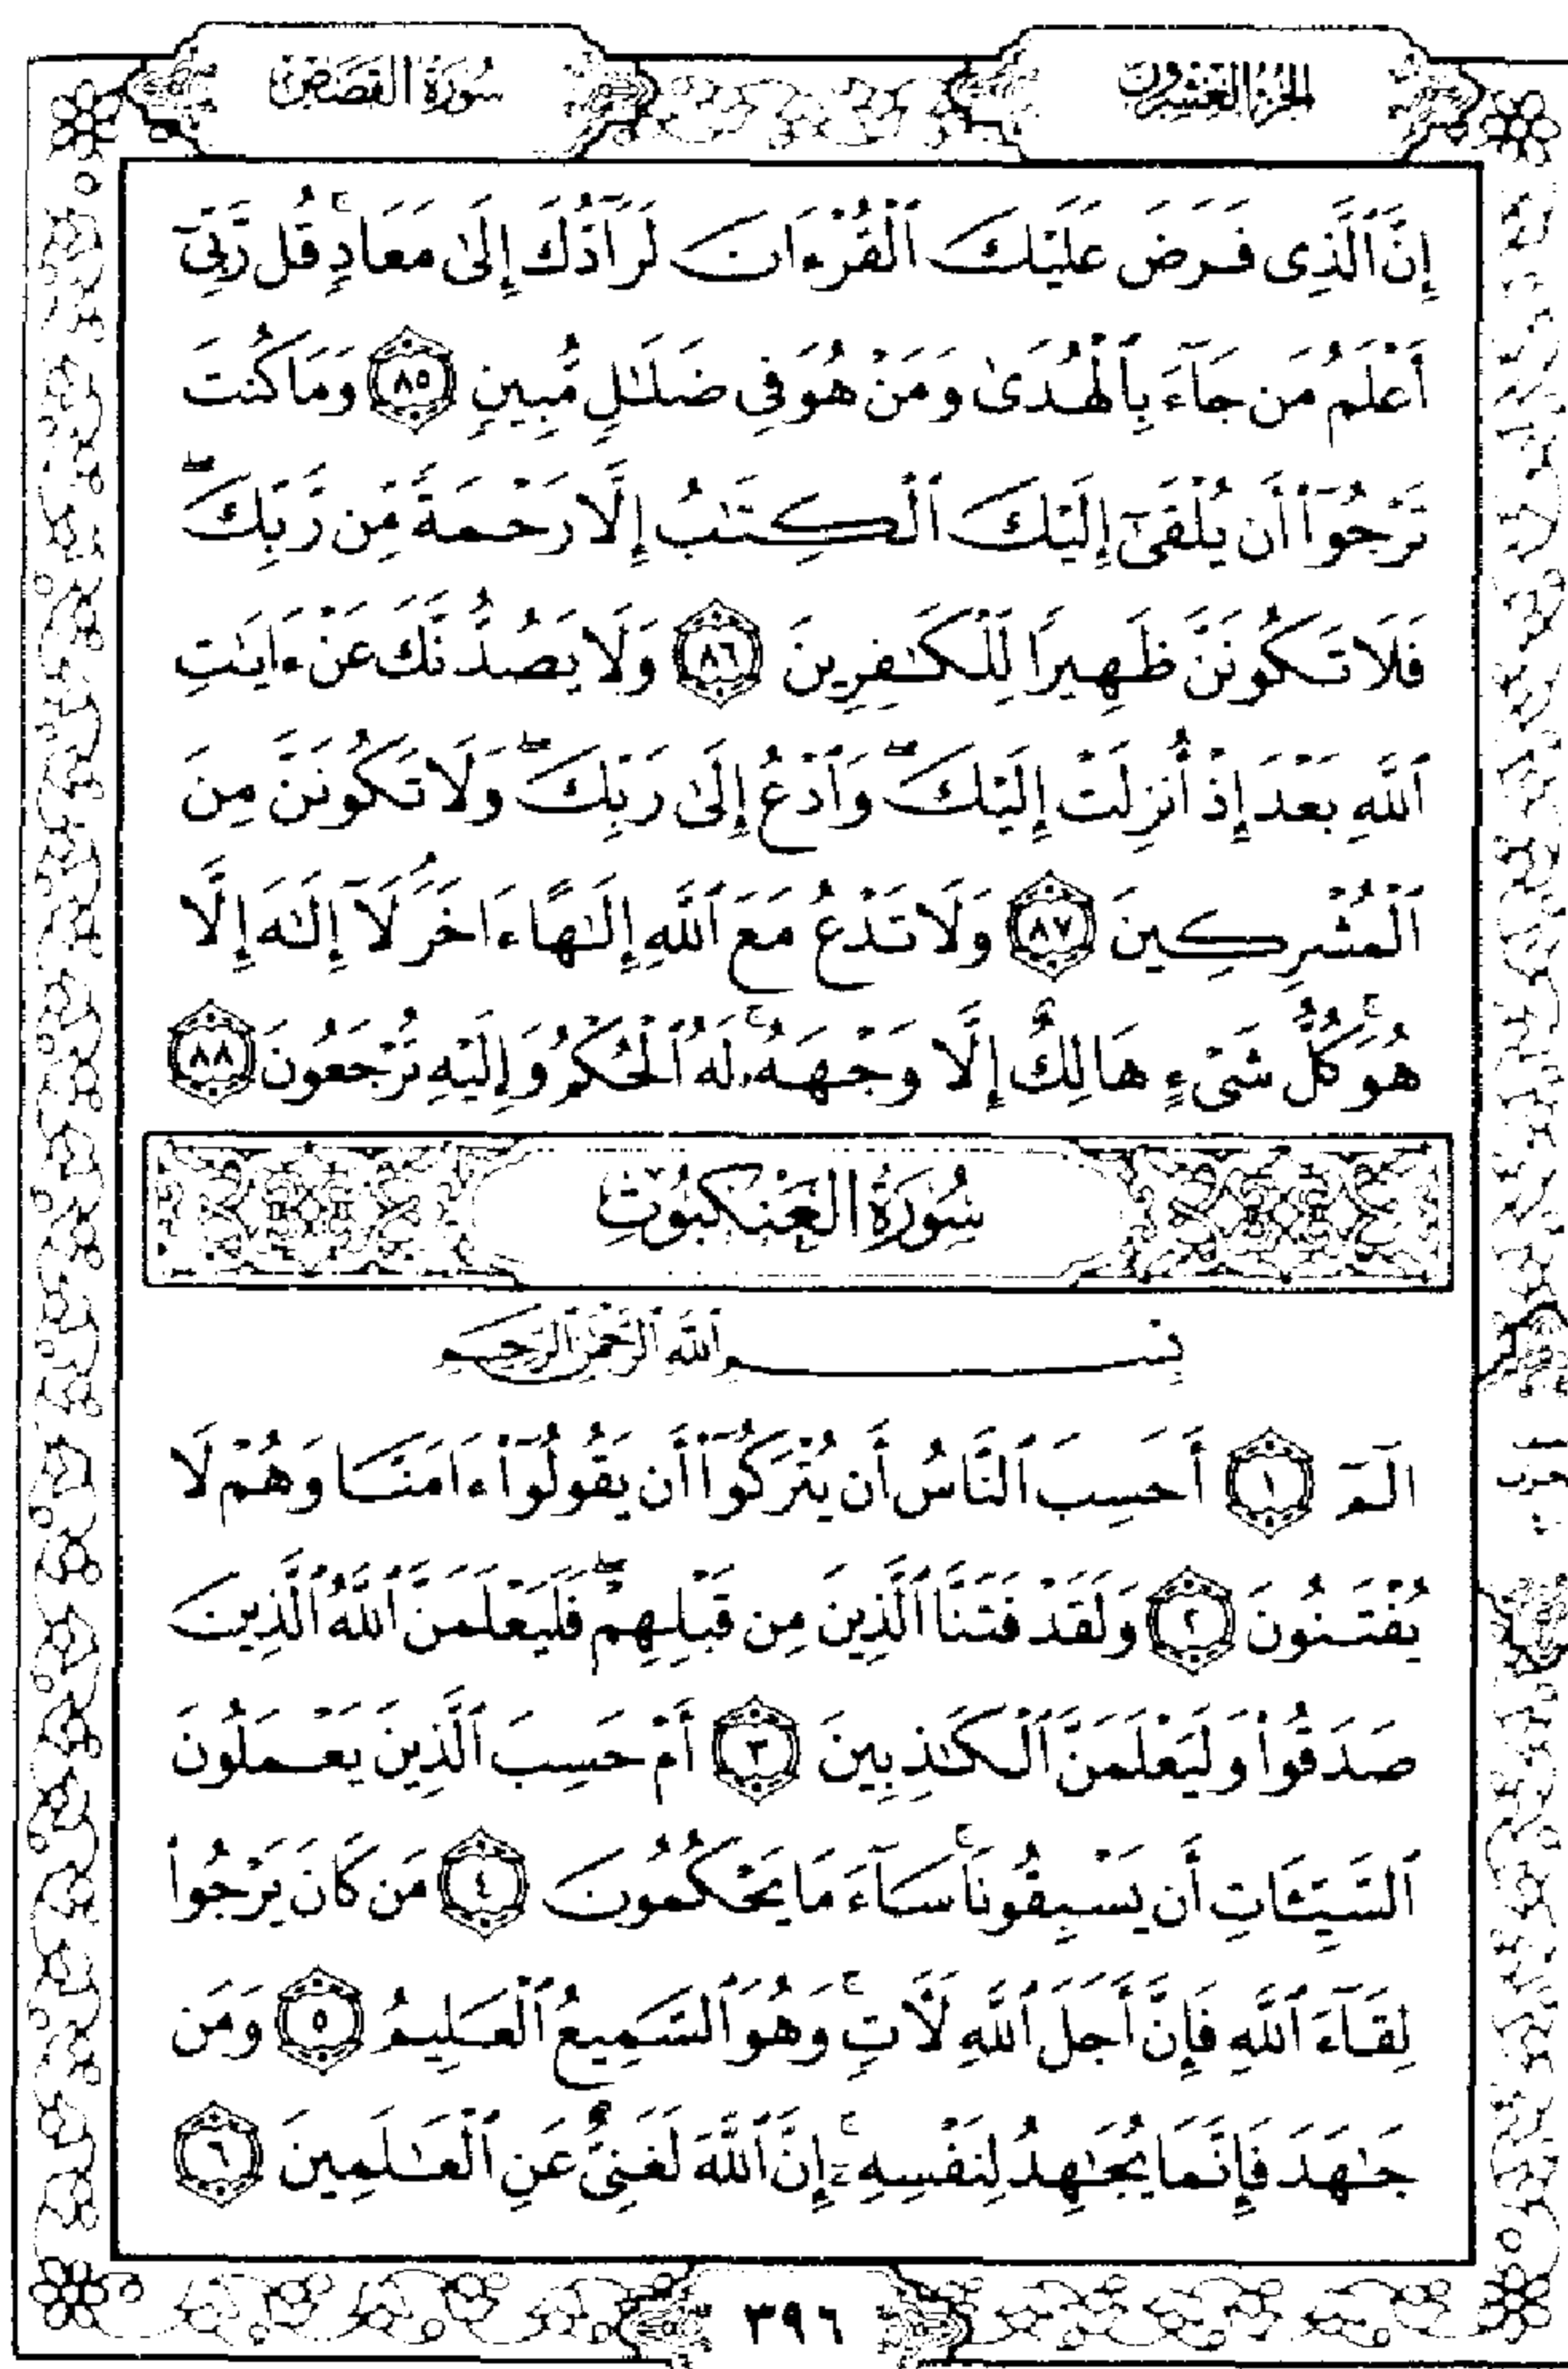 الجزء العشرون
سورة القصص
إِنَّ ٱلَّذِى فَرَضَ عَلَيْكَ ٱلْقُرْءَانَ لَرَآدُّكَ إِلَىٰ مَعَادٍۚ قُل رَّبِّىٓ
أَعْلَمُ مَن جَآءَ بِٱلْهُدَىٰ وَمَنْ هُوَ فِى ضَلَٰلٍ مُّبِينٍ ٨٥ وَمَا كُنتَ
تَرْجُوٓا۟ أَن يُلْقَىٰٓ إِلَيْكَ ٱلْكِتَٰبُ إِلَّا رَحْمَةً مِّن رَّبِّكَۖ
فَلَا تَكُونَنَّ ظَهِيرًا لِّلْكَٰفِرِينَ ٨٦ وَلَا يَصُدُّنَّكَ عَنْ ءَايَٰتِ
ٱللَّهِ بَعْدَ إِذْ أُنزِلَتْ إِلَيْكَۖ وَٱدْعُ إِلَىٰ رَبِّكَۖ وَلَا تَكُونَنَّ مِنَ
ٱلْمُشْرِكِينَ ٨٧ وَلَا تَدْعُ مَعَ ٱللَّهِ إِلَٰهًا ءَاخَرَۘ لَآ إِلَٰهَ إِلَّا
هُوَۚ كُلُّ شَىْءٍ هَالِكٌ إِلَّا وَجْهَهُۥۚ لَهُ ٱلْحُكْمُ وَإِلَيْهِ تُرْجَعُونَ ٨٨
سُورَةُ العَنكَبُوتِ
بِسْمِ ٱللَّهِ ٱلرَّحْمَٰنِ ٱلرَّحِيمِ
الٓمٓ ١ أَحَسِبَ ٱلنَّاسُ أَن يُتْرَكُوٓا۟ أَن يَقُولُوٓا۟ ءَامَنَّا وَهُمْ لَا
يُفْتَنُونَ ٢ وَلَقَدْ فَتَنَّا ٱلَّذِينَ مِن قَبْلِهِمْۖ فَلَيَعْلَمَنَّ ٱللَّهُ ٱلَّذِينَ
صَدَقُوا۟ وَلَيَعْلَمَنَّ ٱلْكَٰذِبِينَ ٣ أَمْ حَسِبَ ٱلَّذِينَ يَعْمَلُونَ
ٱلسَّيِّـَٔاتِ أَن يَسْبِقُونَاۚ سَآءَ مَا يَحْكُمُونَ ٤ مَن كَانَ يَرْجُوا۟
لِقَآءَ ٱللَّهِ فَإِنَّ أَجَلَ ٱللَّهِ لَـَٔاتٍۚ وَهُوَ ٱلسَّمِيعُ ٱلْعَلِيمُ ٥ وَمَن
جَٰهَدَ فَإِنَّمَا يُجَٰهِدُ لِنَفْسِهِۦٓۚ إِنَّ ٱللَّهَ لَغَنِىٌّ عَنِ ٱلْعَٰلَمِينَ ٦
٣٩٦